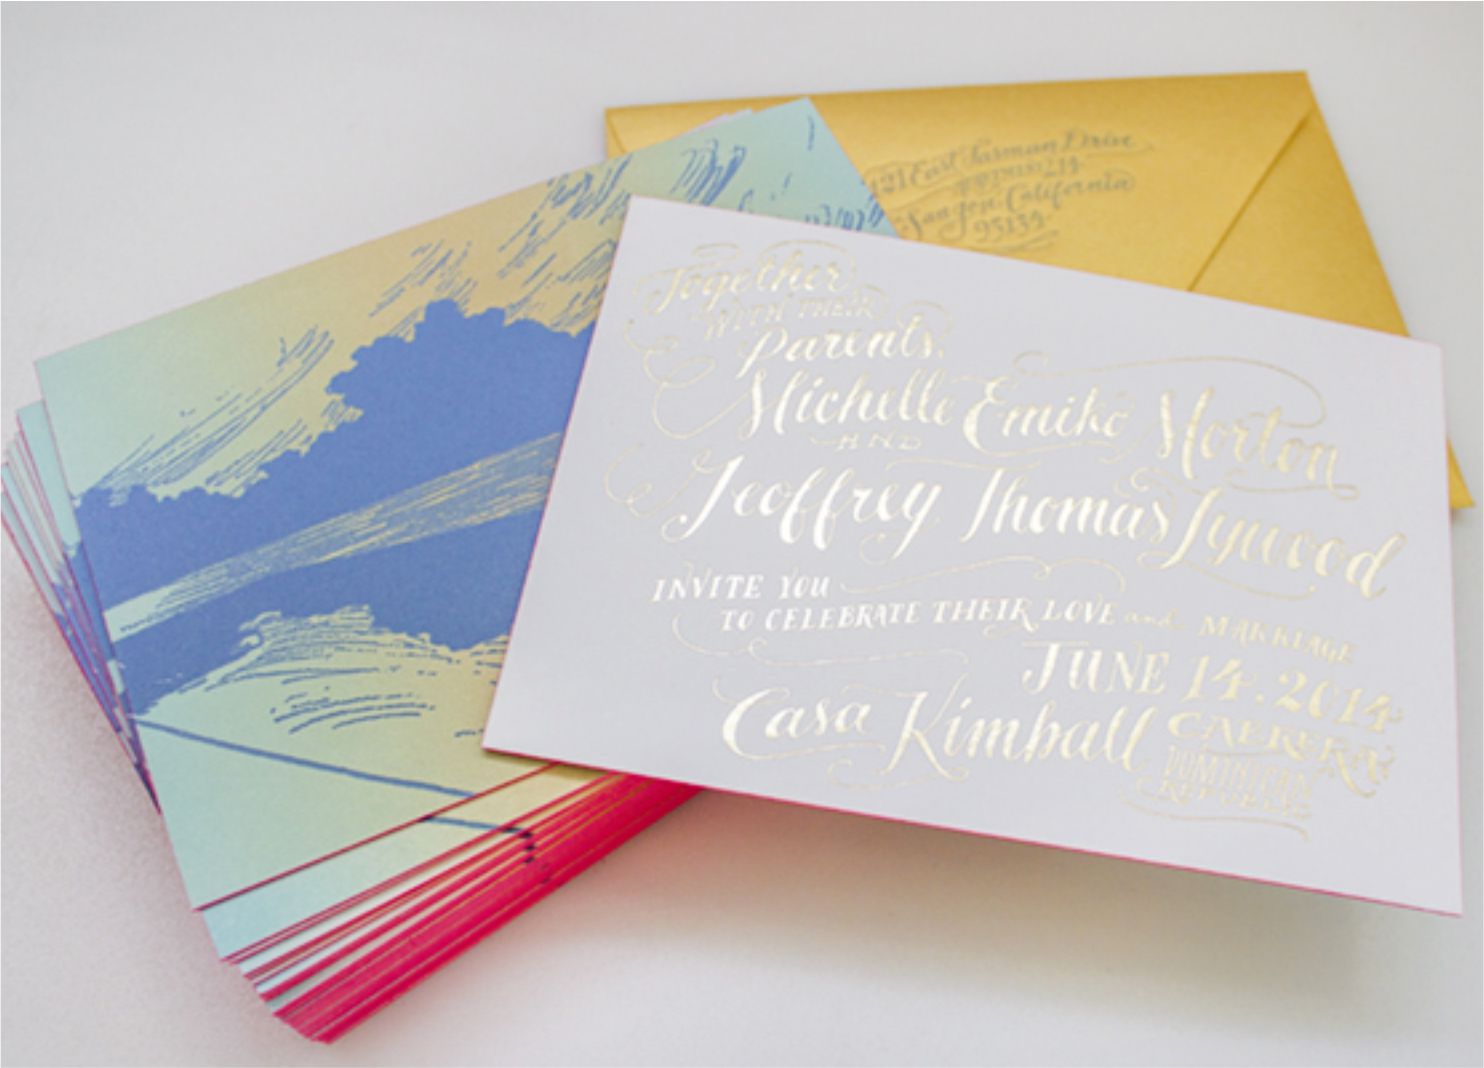 421 East Tasman Drive
San Jose, California
95134
Together
WITH THEIR
Parents,
Michelle Emiko Morton
AND
Geoffrey Thomas Lywood
INVITE YOU
TO CELEBRATE THEIR LOVE and MARRIAGE
JUNE 14. 2014
Casa Kimball CABRERA
DOMINICAN
REPUBLIC